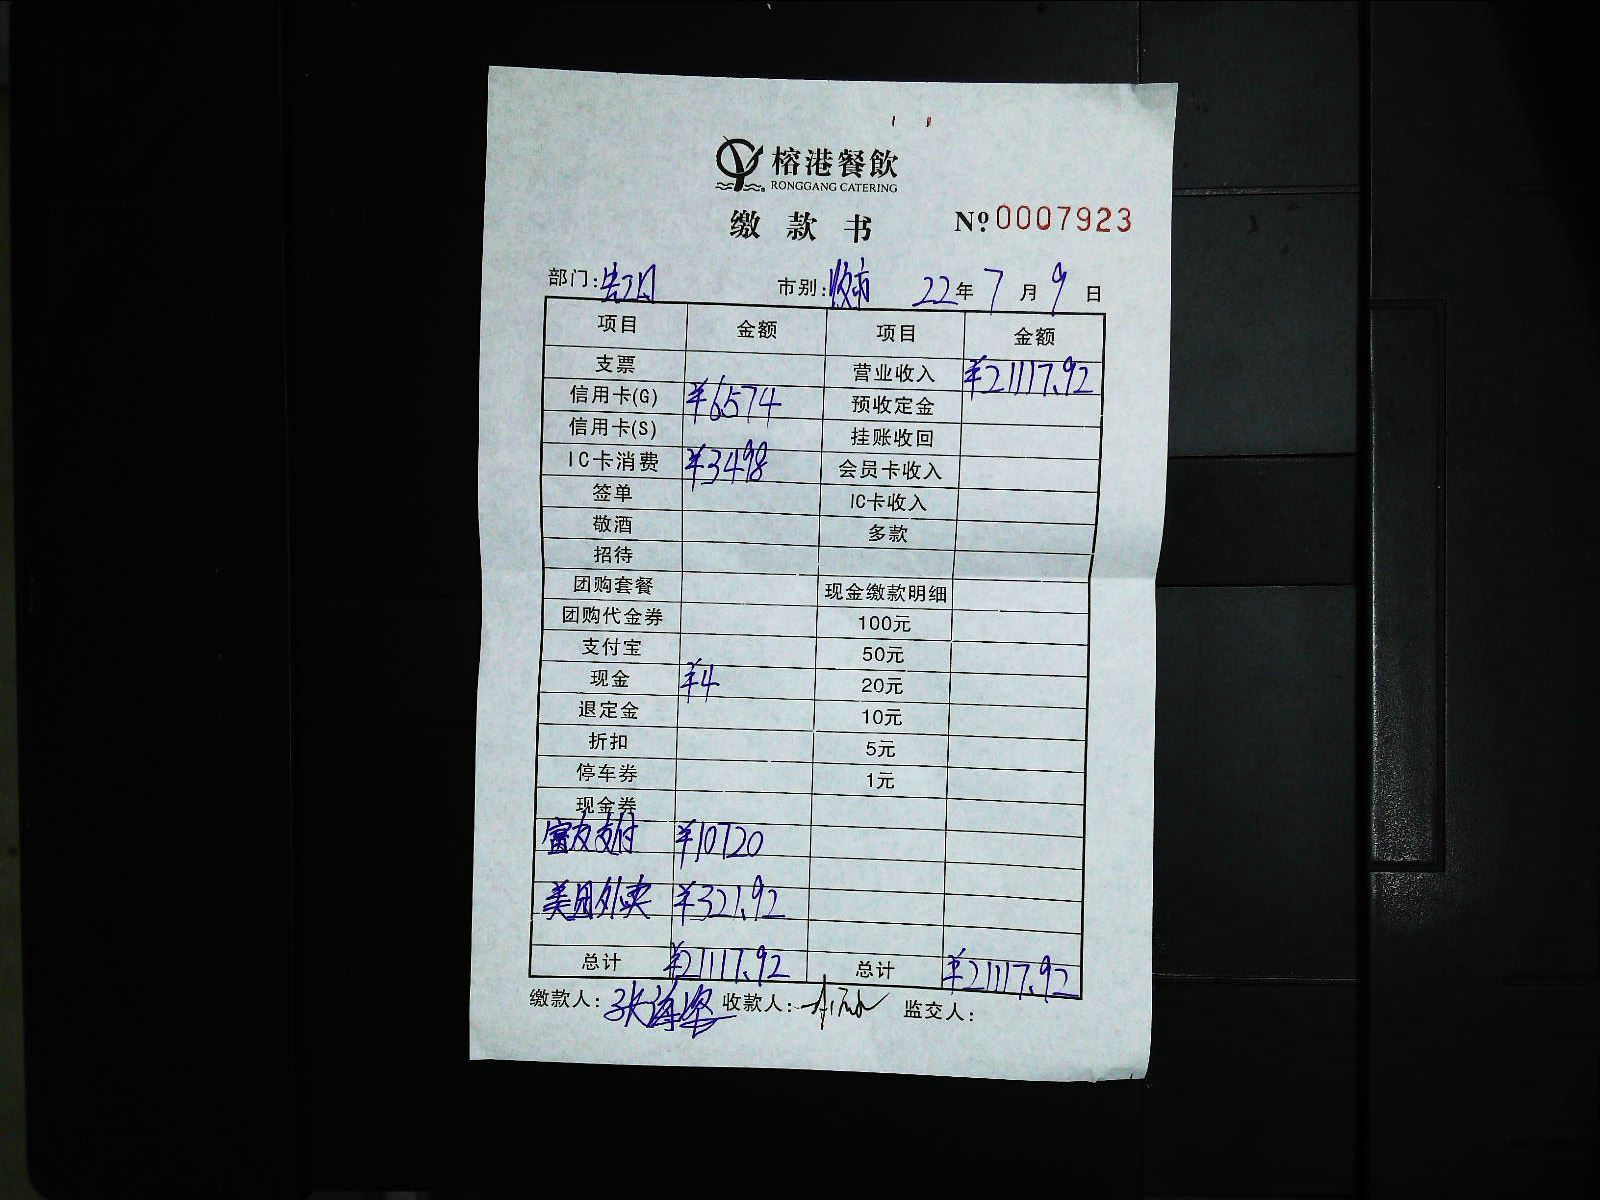 榕港餐飲
RONGGANG CATERING
缴款书 №0007923
部门: 市别:收市 22年7月9日
项目 金额 项目 金额
支票 营业收入 ¥21117.92
信用卡(G) ¥6574 预收定金
信用卡(S) 挂账收回
IC卡消费 ¥3498 会员卡收入
签单 IC卡收入
敬酒 多款
招待
团购套餐 现金缴款明细
团购代金券 100元
支付宝 50元
现金 ¥4 20元
退定金 10元
折扣 5元
停车券 1元
现金券
富友支付 ¥10720
美团外卖 ¥321.92
总计 ¥21117.92 总计 ¥21117.92
缴款人: 收款人: 监交人: